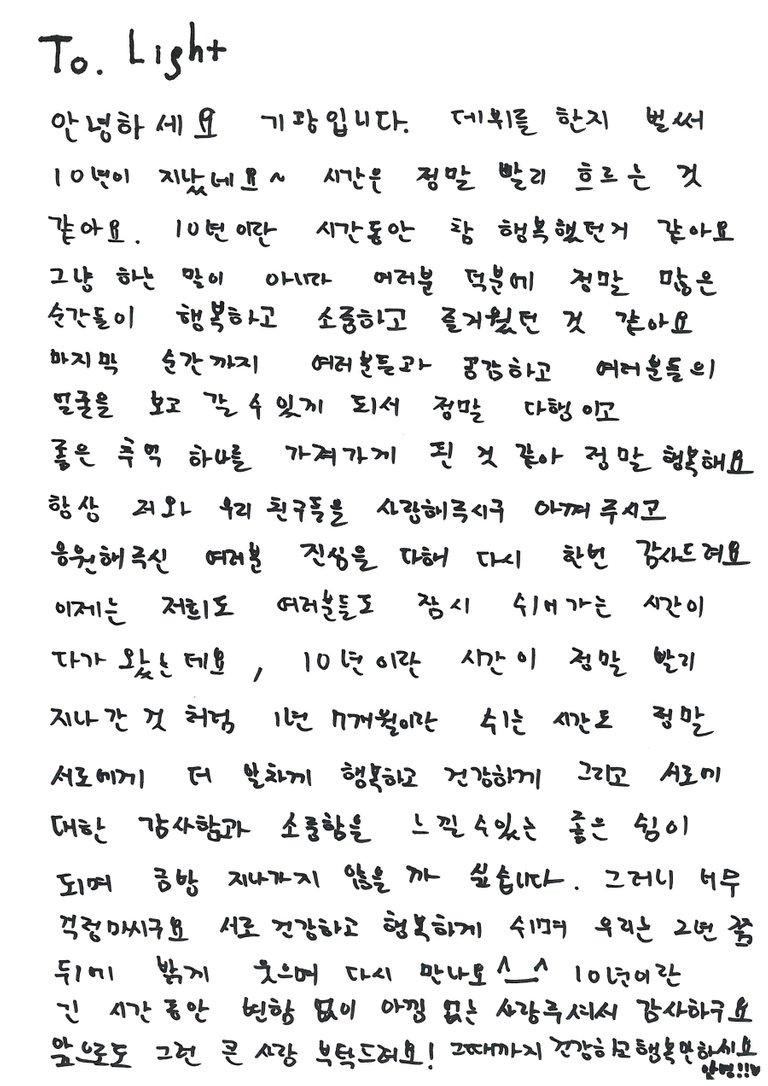 To. Light
안녕하세요 기광입니다. 데뷔를 한지 벌써
10년이 지났네요~ 시간은 정말 빨리 흐르는 것
같아요. 10년이란 시간동안 참 행복했던거 같아요
그냥 하는 말이 아니라 여러분 덕분에 정말 많은
순간들이 행복하고 소중하고 즐거웠던 것 같아요
마지막 순간까지 여러분들과 공감하고 여러분들의
얼굴을 보고 갈 수 있게 되서 정말 다행이고
좋은 추억 하나를 가져가게 된 것 같아 정말 행복해요
항상 저와 우리 친구들을 사랑해주시구 아껴주시고
응원해주신 여러분 진심을 다해 다시 한번 감사드려요
이제는 저희도 여러분들도 잠시 쉬어가는 시간이
다가 왔는데요, 10년이란 시간이 정말 빨리
지나간 것 처럼 1년 7개월이란 쉬는 시간도 정말
서로에게 더 알차게 행복하고 건강하게 그리고 서로에
대한 감사함과 소중함을 느낄 수 있는 좋은 쉼이
되며 금방 지나가지 않을 까 싶습니다. 그러니 너무
걱정마시구요 서로 건강하고 행복하게 쉬며 우리는 2년 쯤
뒤에 밝게 웃으며 다시 만나요^__^ 10년이란
긴 시간동안 변함 없이 아낌 없는 사랑주셔서 감사하구요
앞으로도 그런 큰 사랑 부탁드려요! 그때까지 건강하고 행복만하세요
안녕!!♥